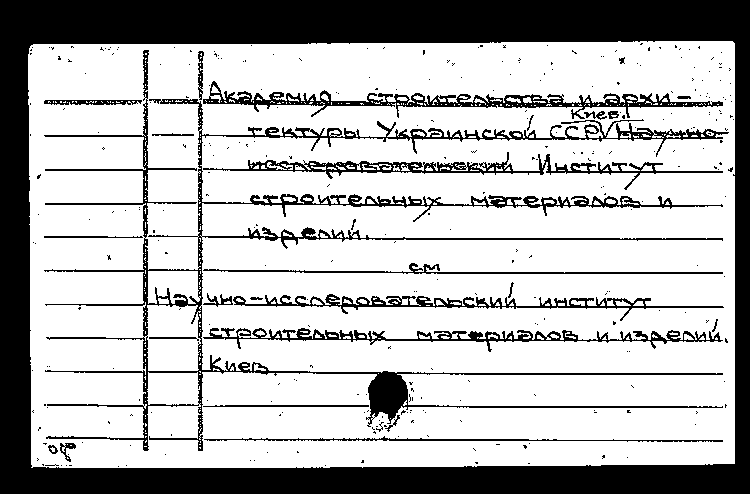 Академия строительства и архи-
Киев.
тектуры Украинской ССР, Научно-
исследовательский Институт
строительных материалов и
изделий.
см
Научно-исследовательский институт
строительных материалов и изделий.
Киев.